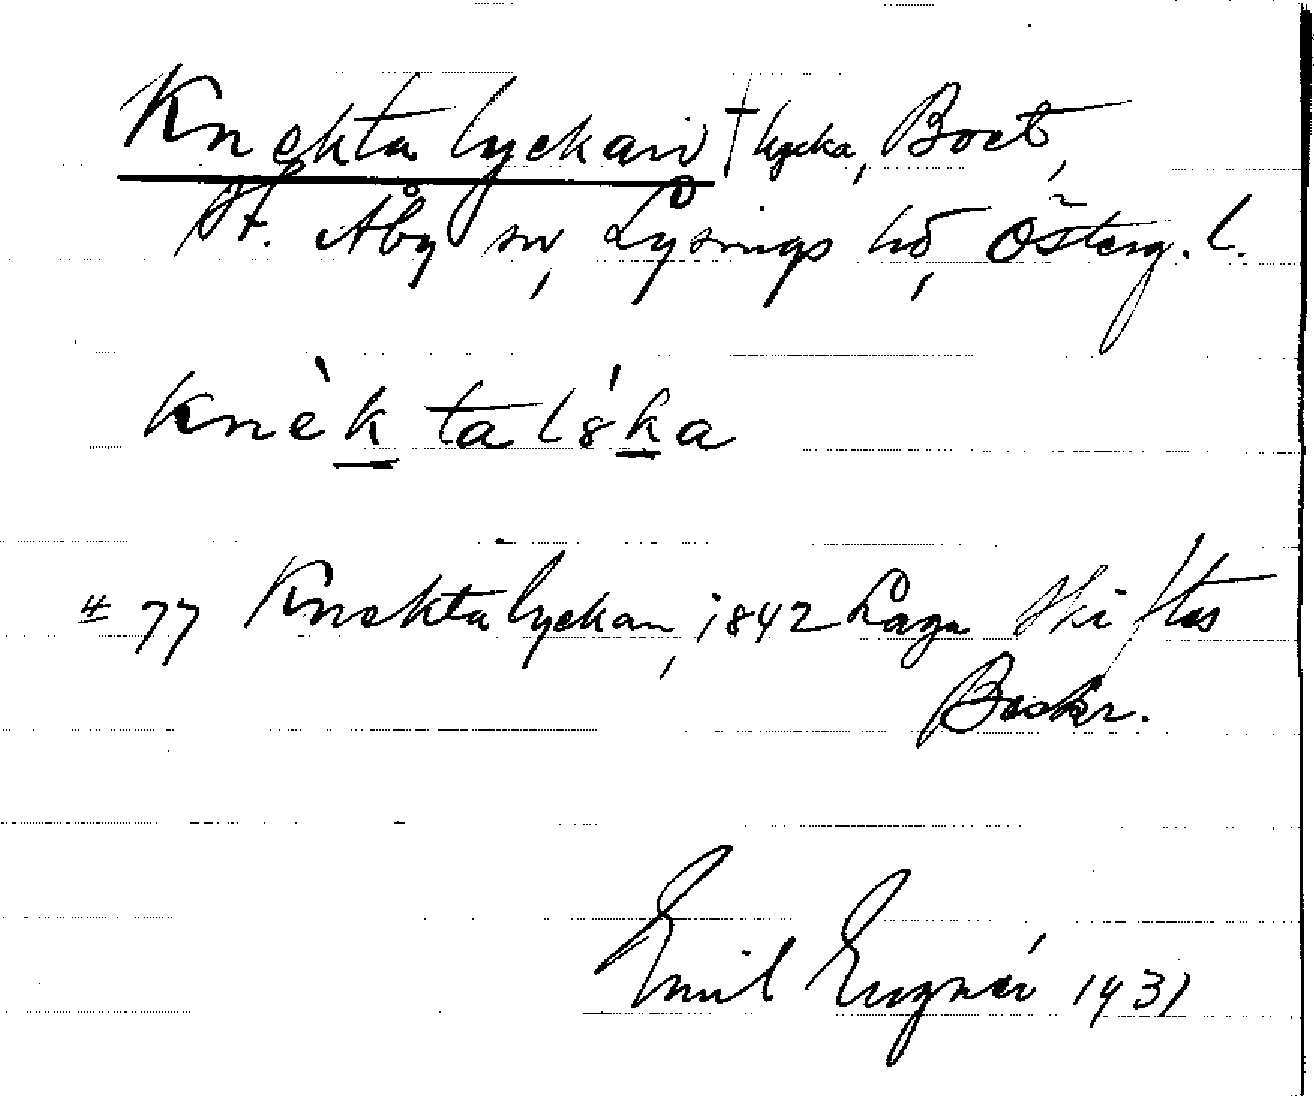 Knektalyckan † lycka, Boet,
St. Åby sn, Lysings hd, Österg. l.
knèktalýka
# 77 Knektalyckan, 1842 Laga Skiftes
Beskr.
Emil 1931